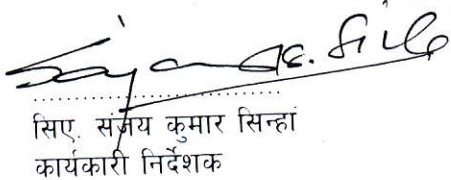 सिए. संजय कुमार सिन्हा
कार्यकारी निर्देशक